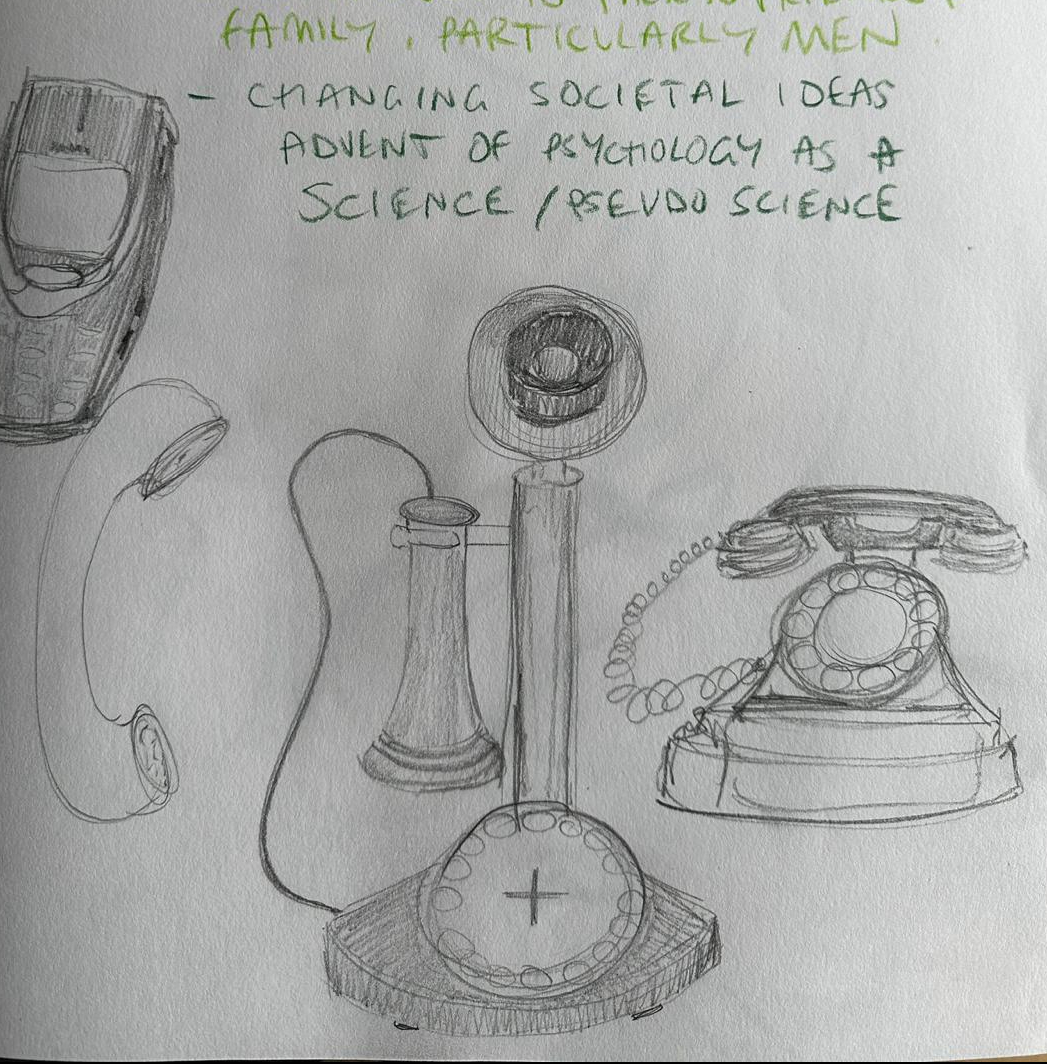 FAMILY, PARTICULARLY MEN.
- CHANGING SOCIETAL IDEAS
ADVENT OF PSYCHOLOGY AS A
SCIENCE / PSEUDO SCIENCE